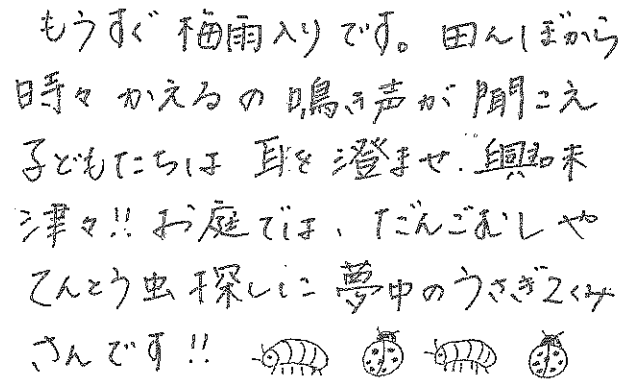 もうすぐ梅雨入りです。田んぼから
時々かえるの鳴き声が聞こえ
子どもたちは耳を澄ませ.興味
津々!!お庭では、だんごむしや
てんとう虫探しに夢中のうさぎ2くみ
さんです!!